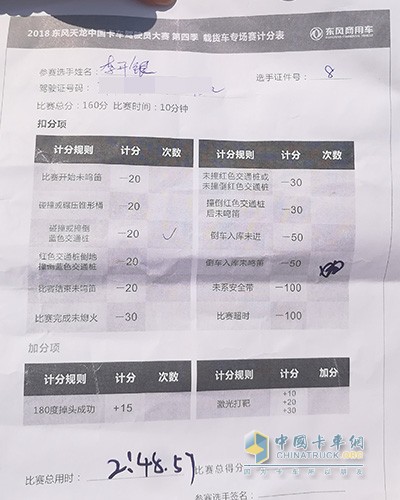 2018东风天龙中国卡车驾驶员大赛 第四季 载货车专场赛计分表 东风商用车
参赛选手姓名: 李开银 选手证件号: 8
驾驶证号码:
比赛总分: 160分 比赛时间: 10分钟
扣分项
计分规则 计分 次数 计分规则 计分 次数
比赛开始未鸣笛 -20 未撞红色交通桩或未撞倒红色交通桩 -30
碰撞或碾压锥形桶 -20 撞倒红色交通桩后未鸣笛 -30
碰撞或撞倒蓝色交通桩 -20 ✓ 倒车入库未进 -50
红色交通桩倒地撞倒蓝色交通桩 -20 倒车入库未鸣笛 -50
比赛结束未鸣笛 -20 未系安全带 -100
比赛完成未熄火 -30 比赛超时 -100
加分项
计分规则 计分 次数 计分规则 计分 加分
180度掉头成功 +15 激光打靶 +10 +20 +30
比赛总用时: 2:48.57 比赛总得分
参赛选手签名:
中国卡车网
CHINATRUCK.ORG